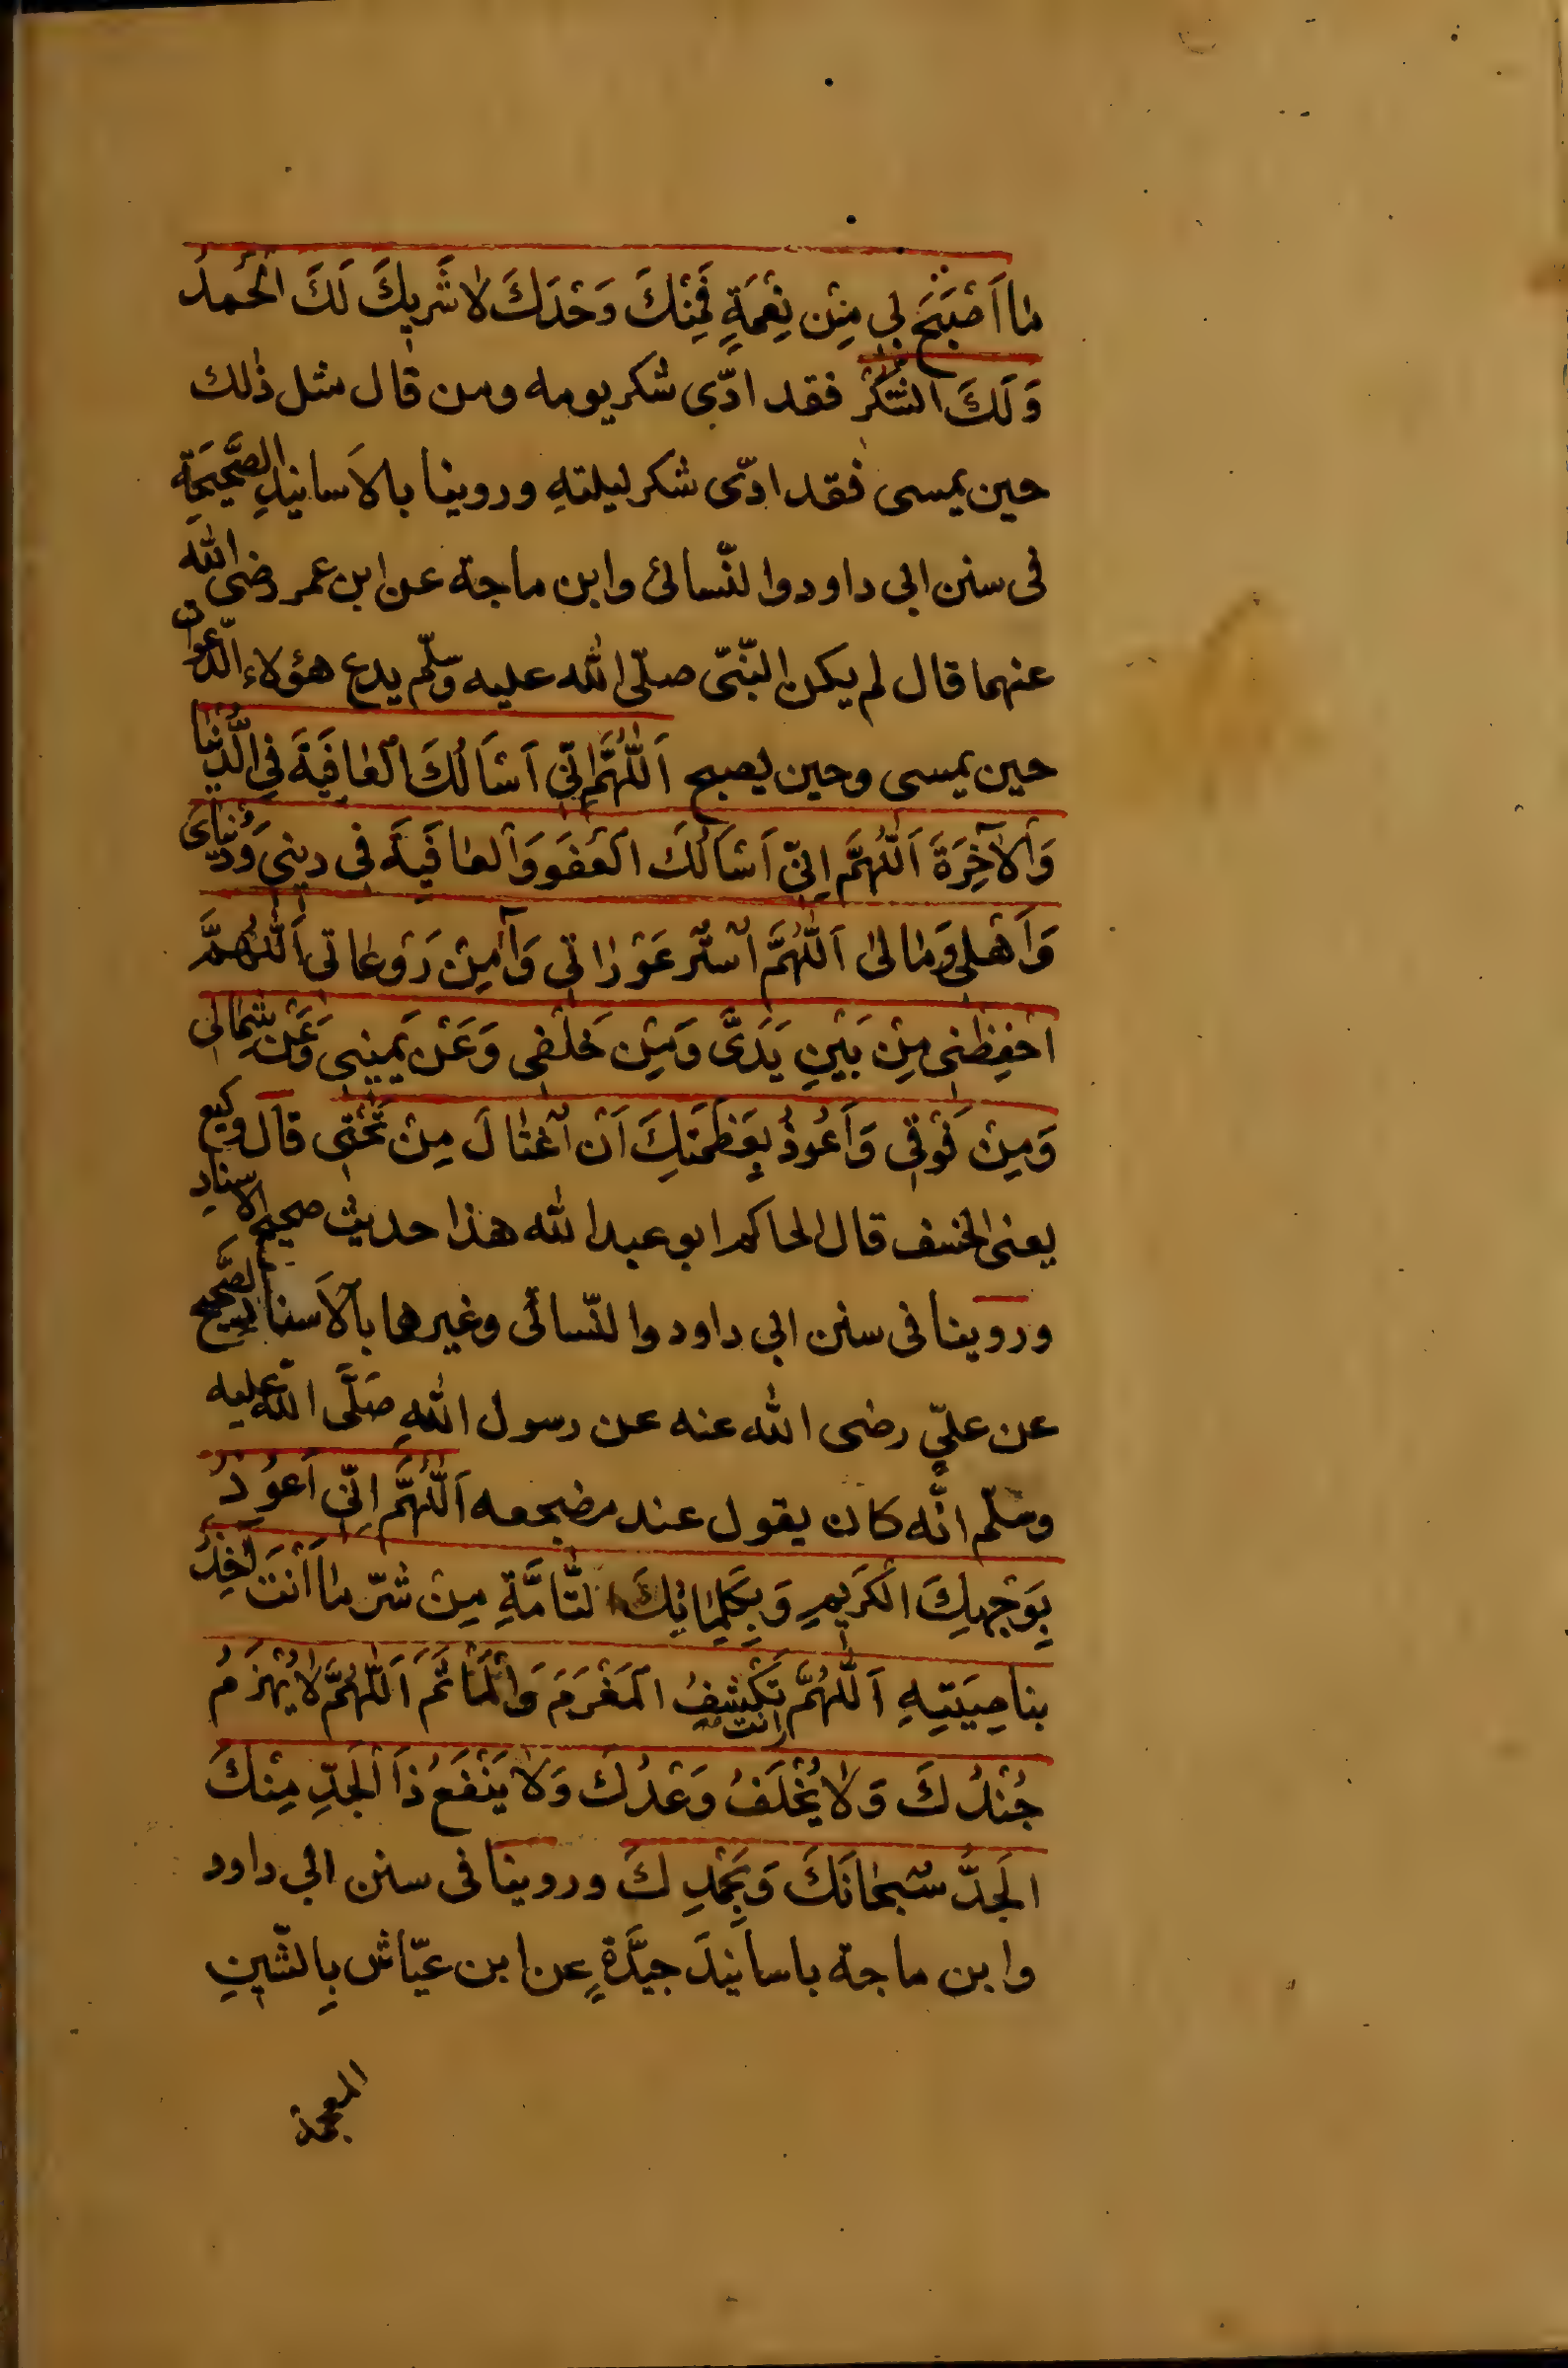 مَا اَصْبَحَ لِي مِنْ نِعْمَةٍ فَمِنْكَ وَحْدَكَ لَا شَرِيكَ لَكَ الْحَمْدُ
وَلَكَ الشُّكْرُ فقد ادّى شكر يومه ومن قال مثل ذٰلك
حين يمسى فقد ادّى شكر ليلتهِ وروينا بالاَسانيدِ الصَّحِيحَةِ
فى سنن ابى داود والنّسائ وابن ماجة عن ابن عمر رضى اللّٰه
عنهما قال لم يكن النّبىّ صلّى اللّٰه عليه وسلّم يدع هؤلاء الدّعوات
حين يمسى وحين يصبح اَللّٰهُمَّ اِنّي اَسْاَلُكَ الْعَافِيَةَ فِي الدُّنْيَا
وَالْآخِرَةَ اَللّٰهُمَّ اِنّي اَسْاَلُكَ الْعَفْوَ وَالْعَافِيَةَ فِي دِينِي وَدُنْيَايَ
وَاَهْلِي وَمَالِي اَللّٰهُمَّ اسْتُرْ عَوْرَاتِي وَآمِنْ رَوْعَاتِي اَللّٰهُمَّ
احْفِظْنِي مِنْ بَيْنِ يَدَىَّ وَمِنْ خَلْفِي وَعَنْ يَمِينِي وَعَنْ شِمَالِي
وَمِنْ فَوْقِي وَاَعُوذُ بِعَظَمَتِكَ اَنْ اُغْتَالَ مِنْ تَحْتِي قال وكيع
يعنى الخسف قال الحاكم ابو عبد اللّٰه هذا حديث صحيح الاسنادِ
وروينا فى سنن ابى داود والنّسائى وغيرهما بالاَسنادِ الصَّحيح
عن علىٍّ رضى اللّٰه عنه عن رسول اللّٰهِ صَلَّى اللّٰه عليه
وسلّم انَّه كان يقول عند مضجعه اَللّٰهُمَّ اِنّي اَعُوذُ
بِوَجْهِكَ الْكَرِيمِ وَبِكَلِمَاتِكَ التَّامَّةِ مِنْ شَرّ مَا اَنْتَ آخِذٌ
بناصِيَتِهِ اَللّٰهُمَّ انت تَكْشِفُ الْمَغْرَمَ وَالْمَأْثَمَ اَللّٰهُمَّ لَا يُهْزَمُ
جُنْدُكَ وَلَا يُخْلَفُ وَعْدُكَ وَلَا يَنْفَعُ ذَا الْجَدِّ مِنْكَ
الْجَدُّ سُبْحَانَكَ وَبِحَمْدِكَ وروينا فى سنن ابي داود
وابن ماجة باسانيدَ جيَّدةٍ عن ابن عيّاش بِالشّينِ
المعجمة